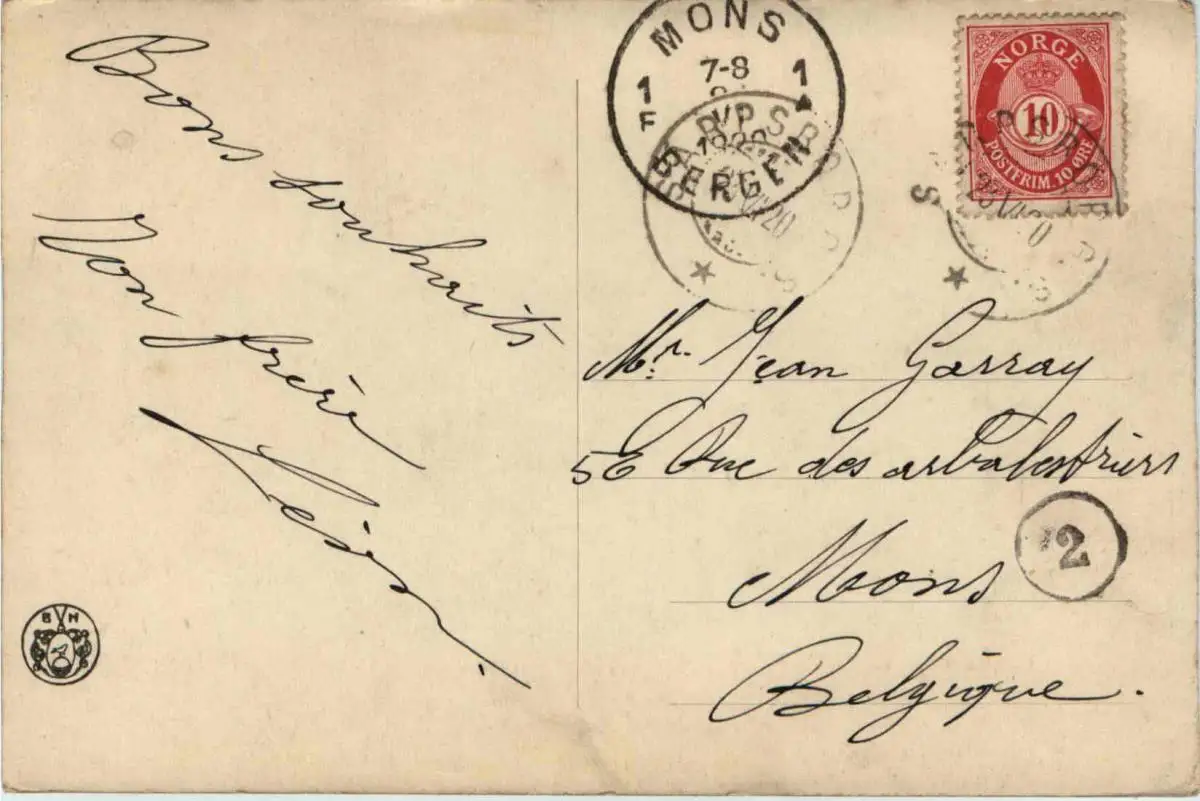 Bons souhaits
Ton frère
MONS
7-8
1 1
F
VI
1920
BERGEN
NORGE
10
POSTFRIM. 10 ØRE
Mr. Jean Garray
5E Rue des arbalestriers
Mons
2
Belgique.
B H